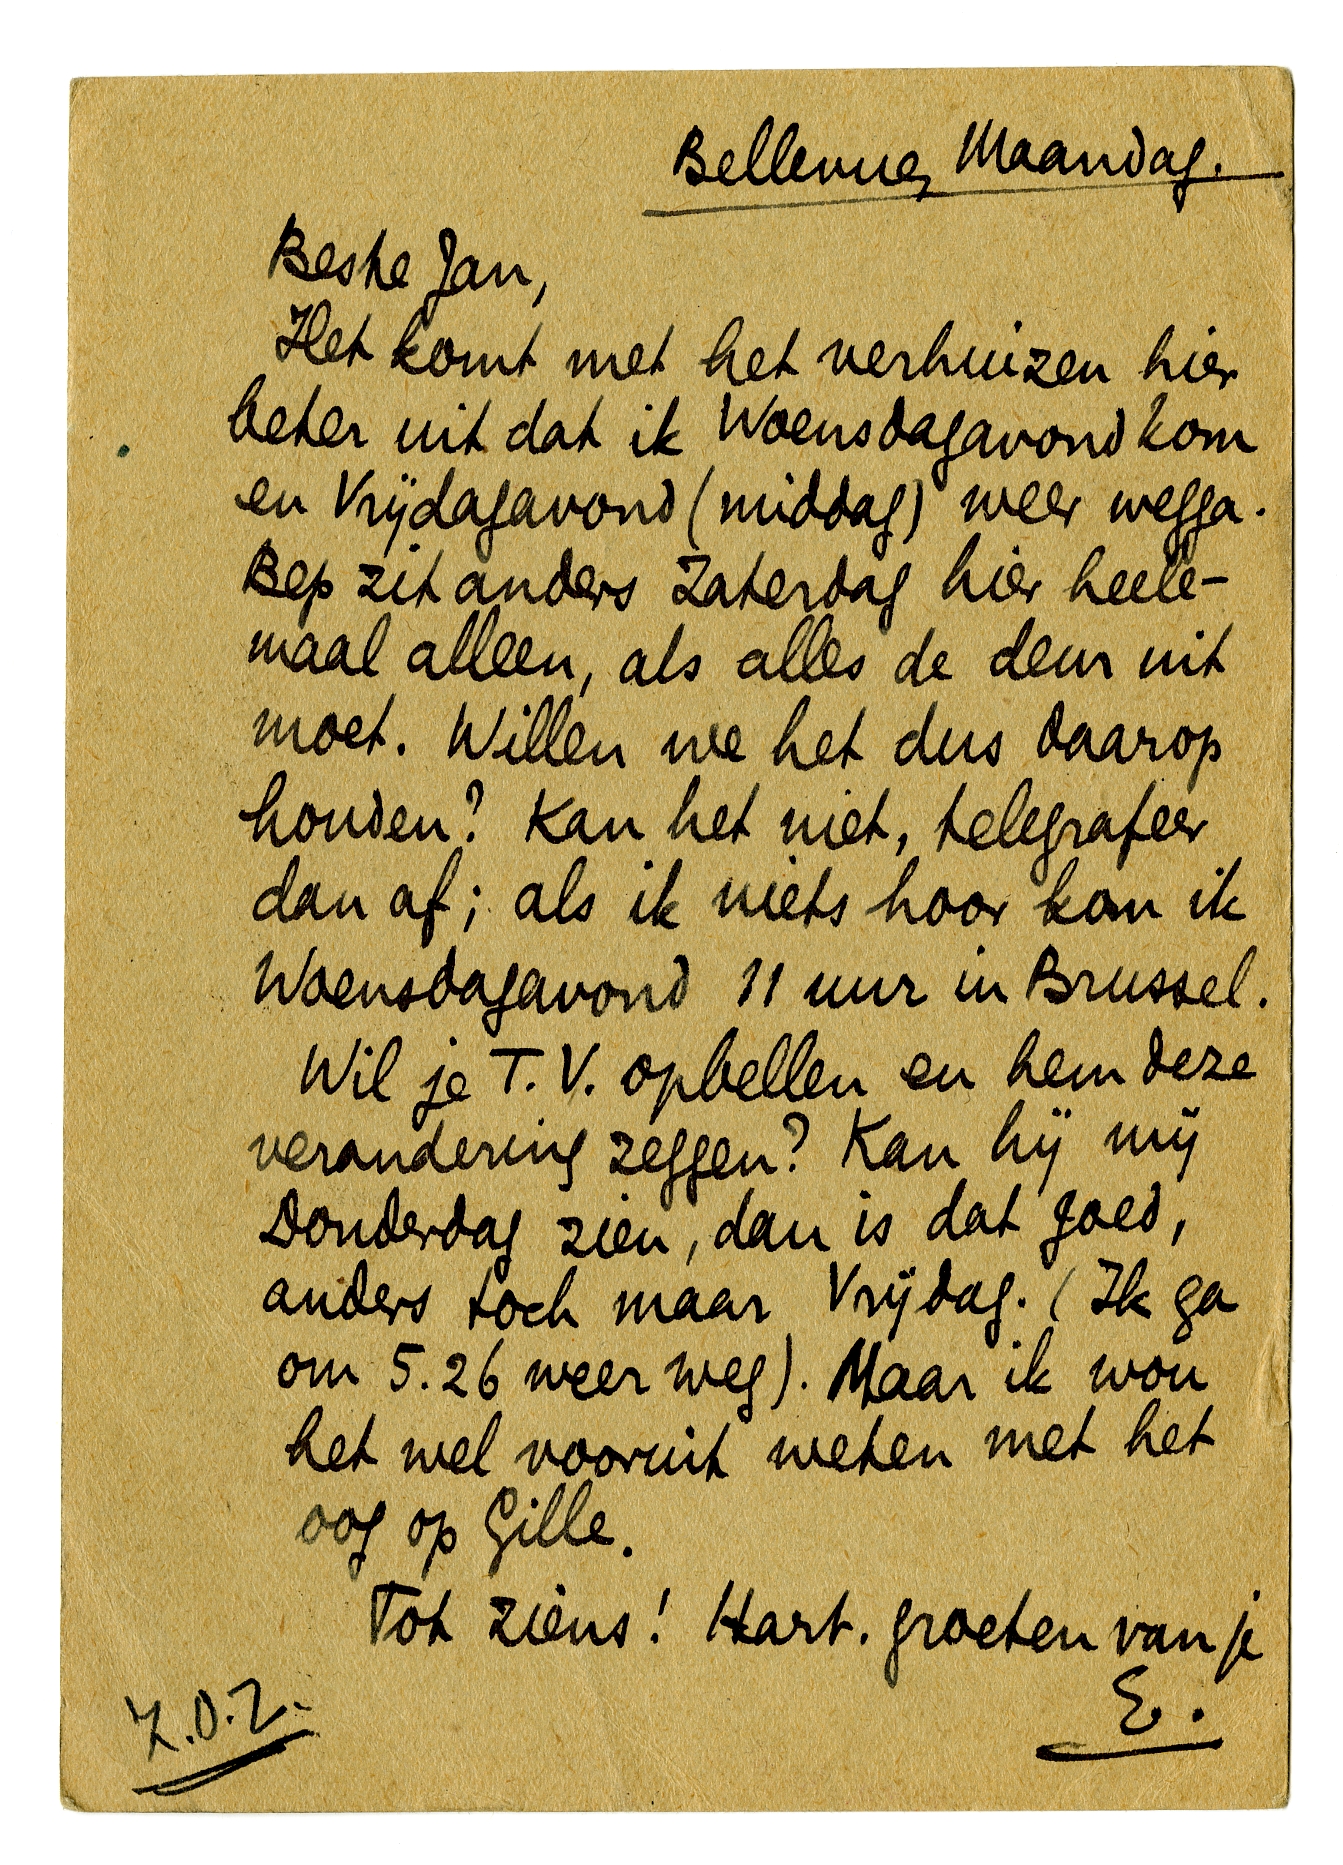 Bellevue, Maandag.
Beste Jan,
Het komt met het verhuizen hier
beter uit dat ik Woensdagavond kom
en Vrijdagavond (middag) weer wegga.
Bep zit anders Zaterdag hier heele-
maal alleen, als alles de deur uit
moet. Willen we het dus daarop
houden? Kan het niet, telegrafeer
dan af; als ik niets hoor kom ik
Woensdagavond 11 uur in Brussel.
Wil je T.V. opbellen en hem deze
verandering zeggen? Kan hij mij
Donderdag zien, dan is dat goed,
anders toch maar Vrijdag. (Ik ga
om 5.26 weer weg). Maar ik wou
het wel vooruit weten met het
oog op Gille.
Tot ziens! Hart. groeten van je
E.
Z.O.Z.